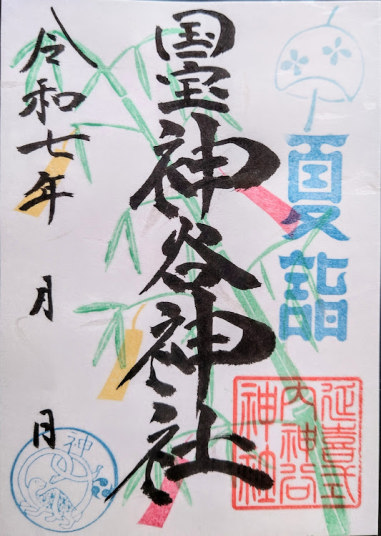 夏詣
国宝
神谷神社
延喜式
内神谷
神社
令和七年
月
日
神